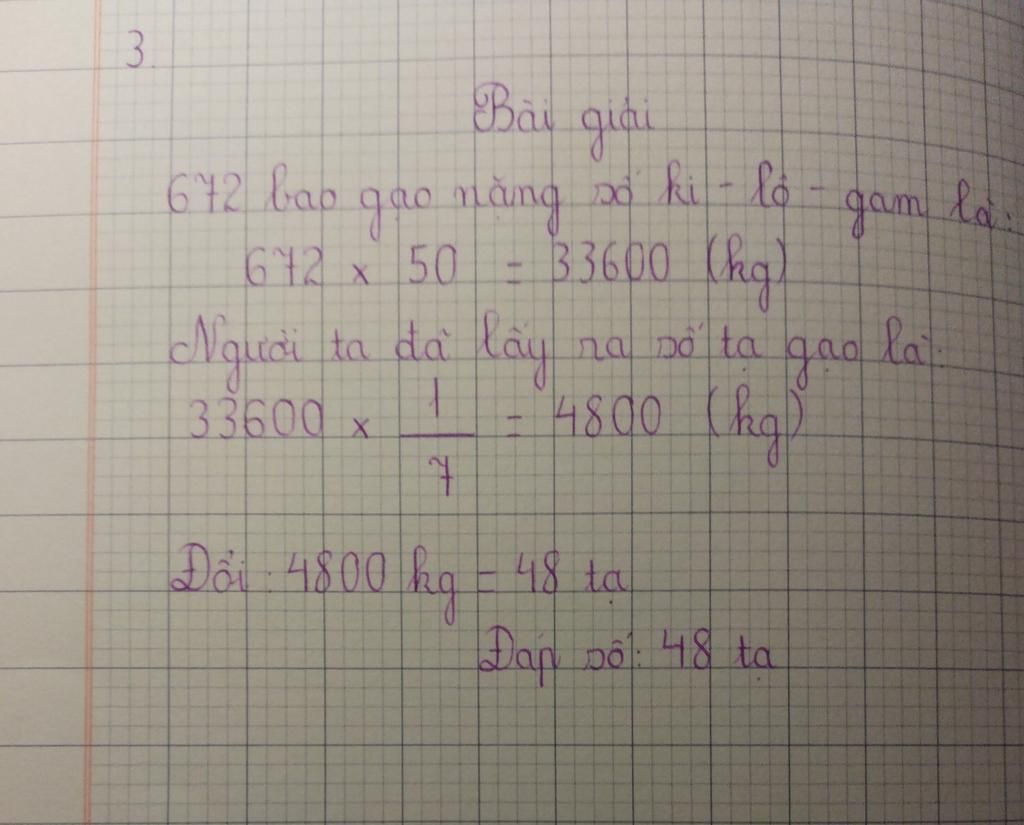 3.
Bài giải
672 bao gạo nặng số ki-lô-gam là:
672 x 50 = 33600 (kg)
Người ta đã lấy ra số tạ gạo là:
33600 x 1/7 = 4800 (kg)
Đổi: 4800 kg = 48 tạ
Đáp số: 48 tạ